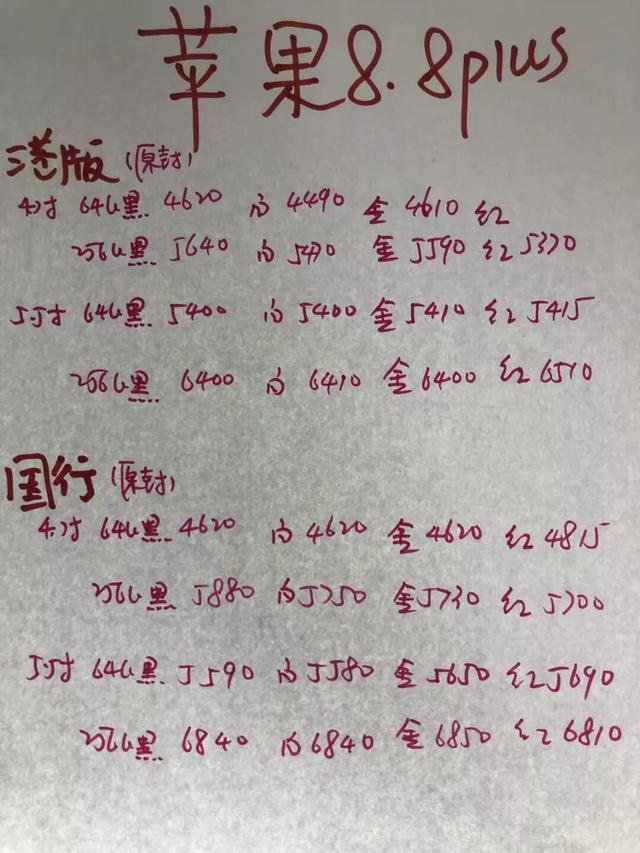 苹果8.8plus
港版(原封)
4.7寸 64G黑 4620 白 4490 金 4610 红
256G黑 5640 白 5470 金 5590 红 5370
5.5寸 64G黑 5400 白 5400 金 5410 红 5415
256G黑 6400 白 6410 金 6400 红 6510
国行(原封)
4.7寸 64G黑 4620 白 4620 金 4620 红 4815
256G黑 5880 白 5750 金 5730 红 5700
5.5寸 64G黑 5590 白 5580 金 5650 红 5690
256G黑 6840 白 6840 金 6850 红 6810